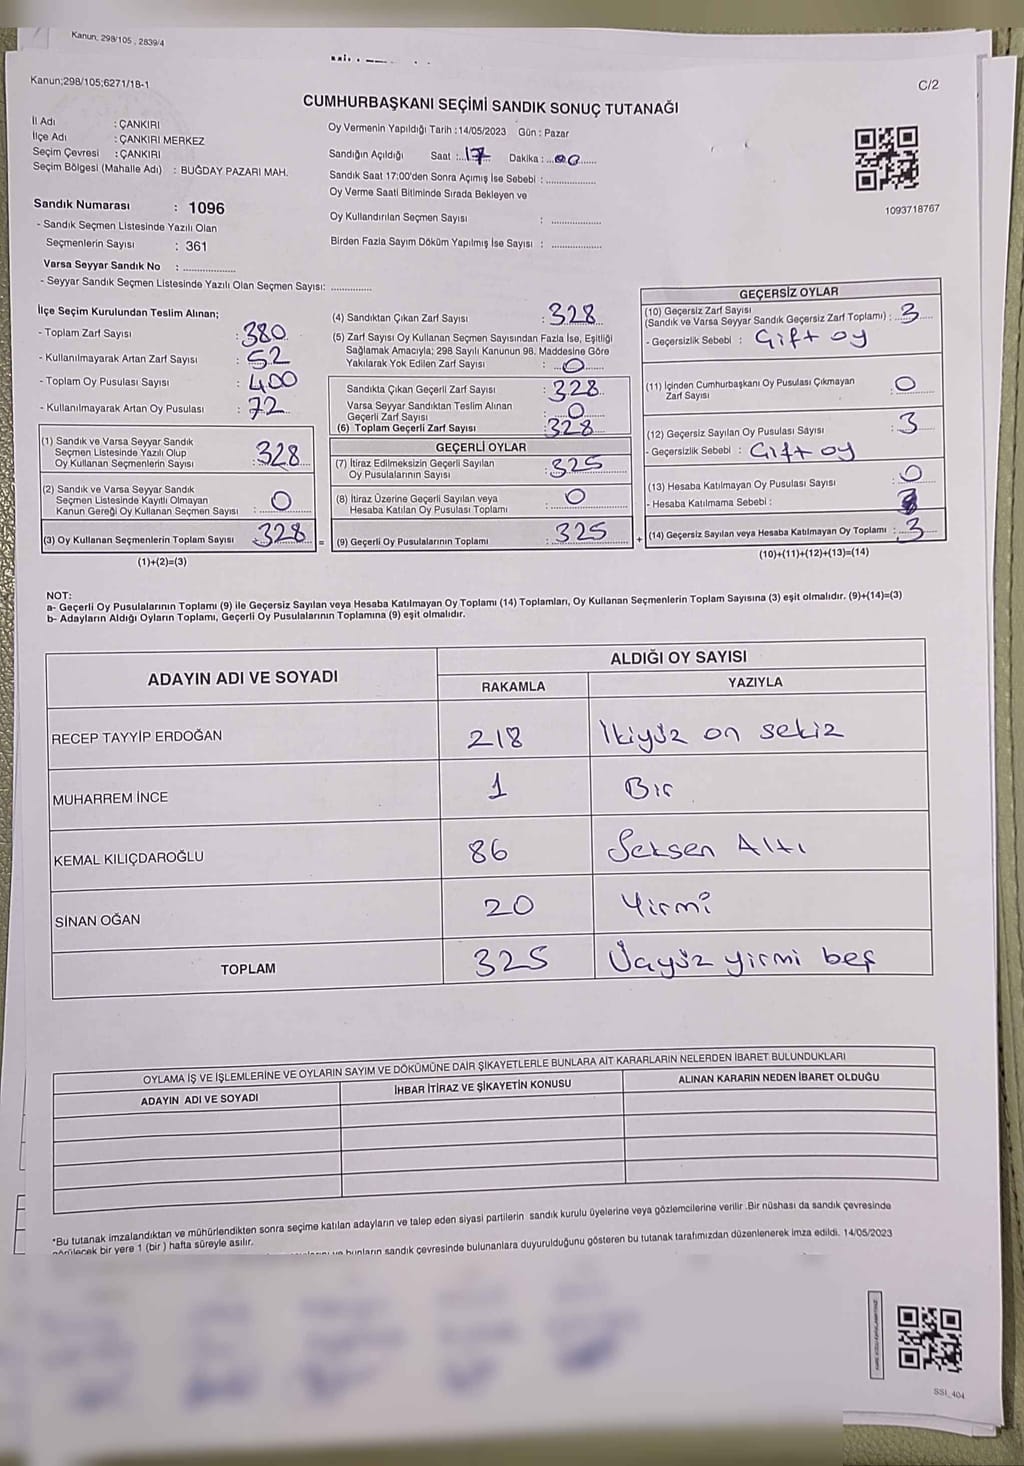 Kanun, 298/105 , 2839/4
Kanun;298/105;6271/18-1
C/2
CUMHURBAŞKANI SEÇİMİ SANDIK SONUÇ TUTANAĞI
İl Adı : ÇANKIRI
İlçe Adı : ÇANKIRI MERKEZ
Seçim Çevresi : ÇANKIRI
Seçim Bölgesi (Mahalle Adı) : BUĞDAY PAZARI MAH.
Oy Vermenin Yapıldığı Tarih :14/05/2023 Gün : Pazar
Sandığın Açıldığı Saat :..17 Dakika :...00......
Sandık Saat 17:00'den Sonra Açımış İse Sebebi : ..................
Oy Verme Saati Bitiminde Sırada Bekleyen ve
Oy Kullandırılan Seçmen Sayısı : ..................
Birden Fazla Sayım Döküm Yapılmış İse Sayısı : ..................
1093718767
Sandık Numarası : 1096
- Sandık Seçmen Listesinde Yazılı Olan
Seçmenlerin Sayısı : 361
Varsa Seyyar Sandık No : ..................
- Seyyar Sandık Seçmen Listesinde Yazılı Olan Seçmen Sayısı: ..............
İlçe Seçim Kurulundan Teslim Alınan;
- Toplam Zarf Sayısı : 380
- Kullanılmayarak Artan Zarf Sayısı : 52
- Toplam Oy Pusulası Sayısı : 400
- Kullanılmayarak Artan Oy Pusulası : 72
(1) Sandık ve Varsa Seyyar Sandık
Seçmen Listesinde Yazılı Olup
Oy Kullanan Seçmenlerin Sayısı : 328
(2) Sandık ve Varsa Seyyar Sandık
Seçmen Listesinde Kayıtlı Olmayan
Kanun Gereği Oy Kullanan Seçmen Sayısı : 0
(3) Oy Kullanan Seçmenlerin Toplam Sayısı : 328 =
(1)+(2)=(3)
(4) Sandıktan Çıkan Zarf Sayısı : 328
(5) Zarf Sayısı Oy Kullanan Seçmen Sayısından Fazla İse, Eşitliği
Sağlamak Amacıyla; 298 Sayılı Kanunun 98. Maddesine Göre
Yakılarak Yok Edilen Zarf Sayısı : 0
Sandıkta Çıkan Geçerli Zarf Sayısı : 328
Varsa Seyyar Sandıktan Teslim Alınan
Geçerli Zarf Sayısı : 0
(6) Toplam Geçerli Zarf Sayısı : 328
GEÇERLİ OYLAR
(7) İtiraz Edilmeksizin Geçerli Sayılan
Oy Pusulalarının Sayısı : 325
(8) İtiraz Üzerine Geçerli Sayılan veya
Hesaba Katılan Oy Pusulası Toplamı : 0
(9) Geçerli Oy Pusulalarının Toplamı : 325 +
GEÇERSİZ OYLAR
(10) Geçersiz Zarf Sayısı
(Sandık ve Varsa Seyyar Sandık Geçersiz Zarf Toplamı) : 3
- Geçersizlik Sebebi : Gift oy
(11) İçinden Cumhurbaşkanı Oy Pusulası Çıkmayan
Zarf Sayısı : 0
(12) Geçersiz Sayılan Oy Pusulası Sayısı : 3
- Geçersizlik Sebebi : Gift oy
(13) Hesaba Katılmayan Oy Pusulası Sayısı : 0
- Hesaba Katılmama Sebebi :
(14) Geçersiz Sayılan veya Hesaba Katılmayan Oy Toplamı : 3
(10)+(11)+(12)+(13)=(14)
NOT:
a- Geçerli Oy Pusulalarının Toplamı (9) ile Geçersiz Sayılan veya Hesaba Katılmayan Oy Toplamı (14) Toplamları, Oy Kullanan Seçmenlerin Toplam Sayısına (3) eşit olmalıdır. (9)+(14)=(3)
b- Adayların Aldığı Oyların Toplamı, Geçerli Oy Pusulalarının Toplamına (9) eşit olmalıdır.
ADAYIN ADI VE SOYADI ALDIĞI OY SAYISI
RAKAMLA YAZIYLA
RECEP TAYYİP ERDOĞAN 218 İkiyüz on sekiz
MUHARREM İNCE 1 Bir
KEMAL KILIÇDAROĞLU 86 Seksen Altı
SİNAN OĞAN 20 Yirmi
TOPLAM 325 Üçyüz yirmi beş
OYLAMA İŞ VE İŞLEMLERİNE VE OYLARIN SAYIM VE DÖKÜMÜNE DAİR ŞİKAYETLERLE BUNLARA AİT KARARLARIN NELERDEN İBARET BULUNDUKLARI
ADAYIN ADI VE SOYADI İHBAR İTİRAZ VE ŞİKAYETİN KONUSU ALINAN KARARIN NEDEN İBARET OLDUĞU
*Bu tutanak imzalandıktan ve mühürlendikten sonra seçime katılan adayların ve talep eden siyasi partilerin sandık kurulu üyelerine veya gözlemcilerine verilir .Bir nüshası da sandık çevresinde
görülecek bir yere 1 (bir ) hafta süreyle asılır.
ve bunların sandık çevresinde bulunanlara duyurulduğunu gösteren bu tutanak tarafımızdan düzenlenerek imza edildi. 14/05/2023
SSI_404